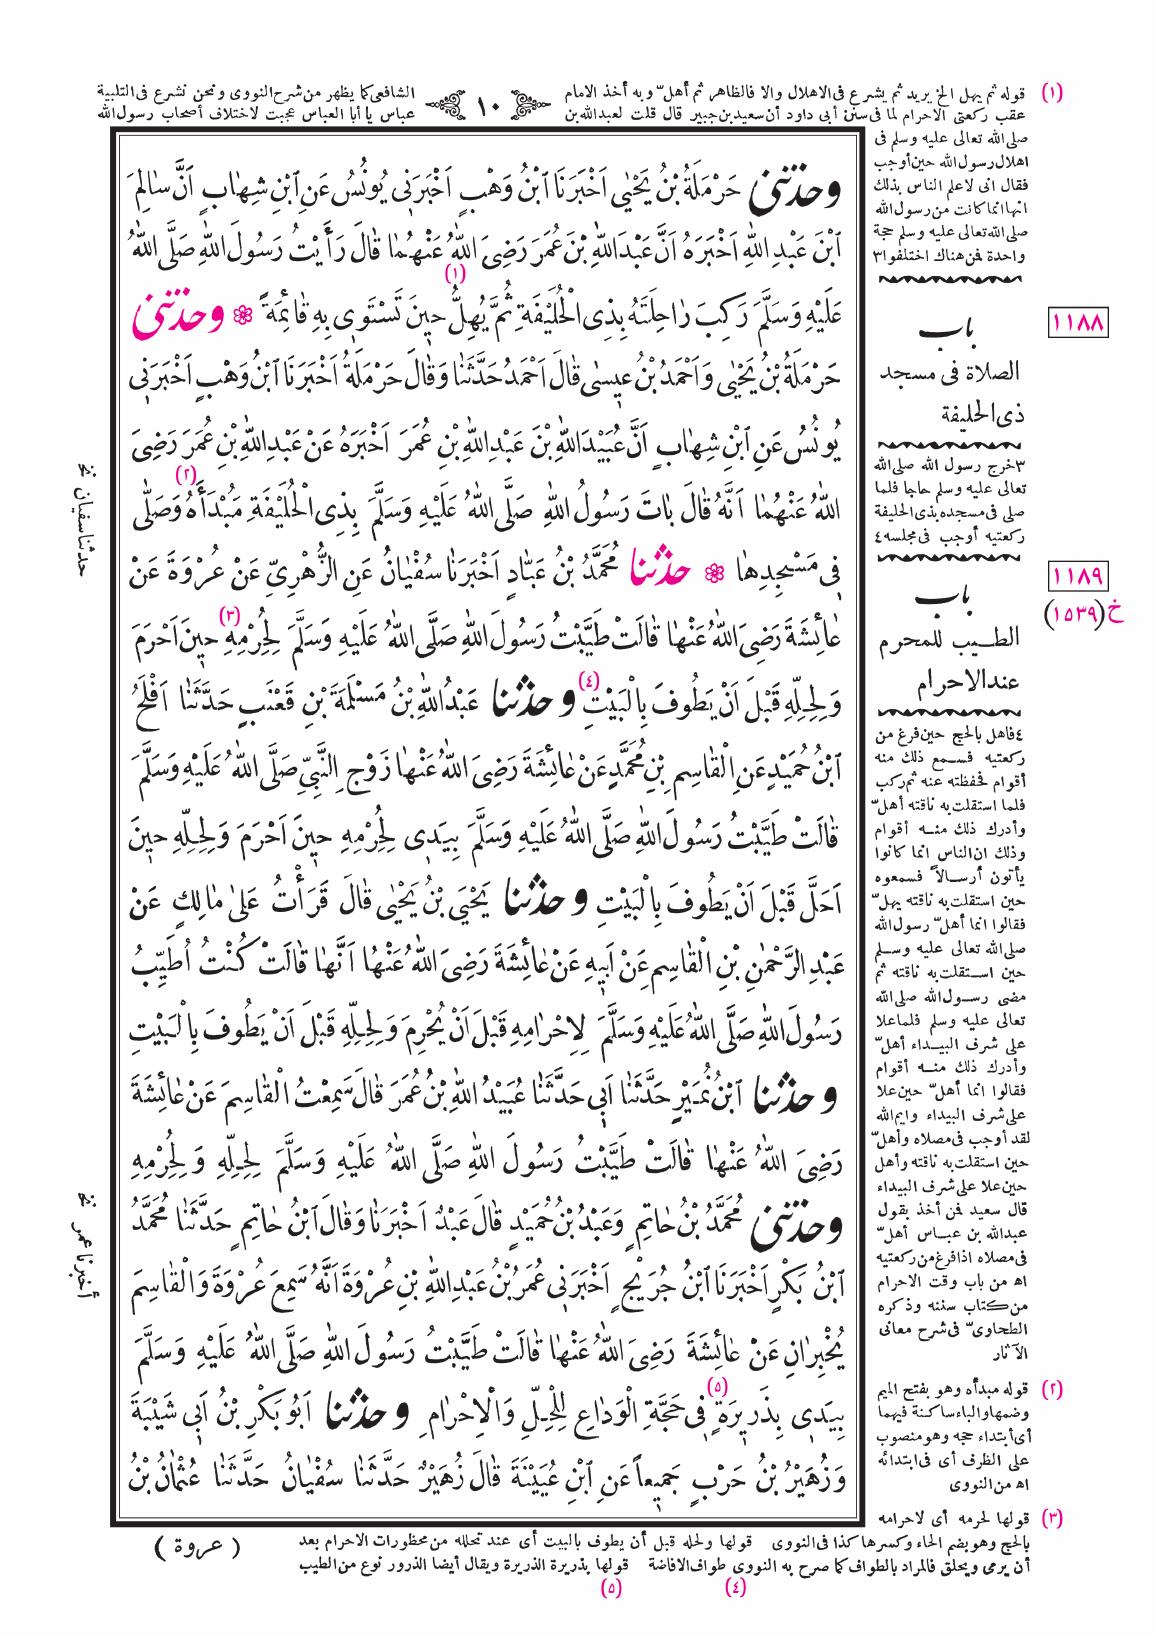 (١) قوله ثم يهل الخ يريد ثم يشرع فى الاهلال والا فالظاهر ثم أهلّ وبه أخذ الامام
عقب ركعتى الاحرام لما فى سنن أبى داود أن سعيد بن جبير قال قلت لعبدالله بن
١٠
الشافعى كما يظهر من شرح النووى ونحن نشرع فى التلبية
عباس يا أبا العباس عجبت لاختلاف أصحاب رسول الله
صلى الله تعالى عليه وسلم فى
اهلال رسول الله حين أوجب
فقال انى لاعلم الناس بذلك
انها انما كانت من رسول الله
صلى الله تعالى عليه وسلم حجة
واحدة فمن هناك اختلفوا ٣
١١٨٨
باب
الصلاة فى مسجد
ذى الحليفة
٣ خرج رسول الله صلى الله
تعالى عليه وسلم حاجا فلما
صلى فى مسجده بذى الحليفة
ركعتيه أوجب فى مجلسه ٤
١١٨٩
خ (١٥٣٩)
باب
الطيب للمحرم
عند الاحرام
٤ فاهل بالحج حين فرغ من
ركعتيه فسمع ذلك منه
أقوام فحفظته عنه ثم ركب
فلما استقلت به ناقته أهلّ
وأدرك ذلك منه أقوام
وذلك ان الناس انما كانوا
يأتون أرسالاً فسمعوه
حين استقلت به ناقته يهلّ
فقالوا انما أهلّ رسول الله
صلى الله تعالى عليه وسلم
حين استقلت به ناقته ثم
مضى رسول الله صلى الله
تعالى عليه وسلم فلما علا
على شرف البيداء أهلّ
وأدرك ذلك منه أقوام
فقالوا انما أهلّ حين علا
على شرف البيداء وايم الله
لقد أوجب فى مصلاه وأهلّ
حين استقلت به ناقته وأهل
حين علا على شرف البيداء
قال سعيد فمن أخذ بقول
عبدالله بن عباس أهلّ
فى مصلاه اذا فرغ من ركعتيه
اه من باب وقت الاحرام
من كتاب سننه وذكره
الطحاوىّ فى شرح معانى
الآثار
(٢) قوله مبدأه وهو بفتح الميم
وضمها والباء ساكنة فيهما
أى ابتداء حجه وهو منصوب
على الظرف أى فى ابتدائه
اه من النووى
(٣) قولها لحرمه أى لاحرامه
وحَدَّثَنِى حَرْمَلَةُ بْنُ يَحْيٰى اَخْبَرَنَا ابْنُ وَهْبٍ اَخْبَرَنِى يُونُسُ عَنِ ابْنِ شِهَابٍ اَنَّ سَالِمَ
ابْنَ عَبْدِ اللهِ اَخْبَرَهُ اَنَّ عَبْدَاللهِ بْنَ عُمَرَ رَضِىَ اللهُ عَنْهُمَا قَالَ رَأَيْتُ رَسُولَ اللهِ صَلَّى اللهُ
عَلَيْهِ وَسَلَّمَ رَكِبَ رَاحِلَتَهُ بِذِى الْحُلَيْفَةِ ثُمَّ يُهِلُّ (١) حِينَ تَسْتَوِى بِهِ قَائِمَةً ۞ وحَدَّثَنِى
حَرْمَلَةُ بْنُ يَحْيٰى وَاَحْمَدُ بْنُ عِيسٰى قَالَ اَحْمَدُ حَدَّثَنَا وَقَالَ حَرْمَلَةُ اَخْبَرَنَا ابْنُ وَهْبٍ اَخْبَرَنِى
يُونُسُ عَنِ ابْنِ شِهَابٍ اَنَّ عُبَيْدَاللهِ بْنَ عَبْدِاللهِ بْنِ عُمَرَ اَخْبَرَهُ عَنْ عَبْدِاللهِ بْنِ عُمَرَ رَضِىَ
اللهُ عَنْهُمَا اَنَّهُ قَالَ بَاتَ رَسُولُ اللهِ صَلَّى اللهُ عَلَيْهِ وَسَلَّمَ بِذِى الْحُلَيْفَةِ مَبْدَأَهُ (٢) وَصَلّٰى
فِى مَسْجِدِهَا ۞ حَدَّثَنَا مُحَمَّدُ بْنُ عَبَّادٍ اَخْبَرَنَا سُفْيَانُ عَنِ الزُّهْرِىِّ عَنْ عُرْوَةَ عَنْ
عَائِشَةَ رَضِىَ اللهُ عَنْهَا قَالَتْ طَيَّبْتُ رَسُولَ اللهِ صَلَّى اللهُ عَلَيْهِ وَسَلَّمَ لِحُرْمِهِ (٣) حِينَ اَحْرَمَ
وَلِحِلِّهِ قَبْلَ اَنْ يَطُوفَ بِالْبَيْتِ (٤) وحَدَّثَنَا عَبْدُاللهِ بْنُ مَسْلَمَةَ بْنِ قَعْنَبٍ حَدَّثَنَا اَفْلَحُ
ابْنُ حُمَيْدٍ عَنِ الْقَاسِمِ بْنِ مُحَمَّدٍ عَنْ عَائِشَةَ رَضِىَ اللهُ عَنْهَا زَوْجِ النَّبِىِّ صَلَّى اللهُ عَلَيْهِ وَسَلَّمَ
قَالَتْ طَيَّبْتُ رَسُولَ اللهِ صَلَّى اللهُ عَلَيْهِ وَسَلَّمَ بِيَدِى لِحُرْمِهِ حِينَ اَحْرَمَ وَلِحِلِّهِ حِينَ
اَحَلَّ قَبْلَ اَنْ يَطُوفَ بِالْبَيْتِ وحَدَّثَنَا يَحْيَى بْنُ يَحْيٰى قَالَ قَرَأْتُ عَلٰى مَالِكٍ عَنْ
عَبْدِ الرَّحْمٰنِ بْنِ الْقَاسِمِ عَنْ اَبِيهِ عَنْ عَائِشَةَ رَضِىَ اللهُ عَنْهَا اَنَّهَا قَالَتْ كُنْتُ اُطَيِّبُ
رَسُولَ اللهِ صَلَّى اللهُ عَلَيْهِ وَسَلَّمَ لِاِحْرَامِهِ قَبْلَ اَنْ يُحْرِمَ وَلِحِلِّهِ قَبْلَ اَنْ يَطُوفَ بِالْبَيْتِ
وحَدَّثَنَا ابْنُ نُمَيْرٍ حَدَّثَنَا اَبِى حَدَّثَنَا عُبَيْدُ اللهِ بْنُ عُمَرَ قَالَ سَمِعْتُ الْقَاسِمَ عَنْ عَائِشَةَ
رَضِىَ اللهُ عَنْهَا قَالَتْ طَيَّبْتُ رَسُولَ اللهِ صَلَّى اللهُ عَلَيْهِ وَسَلَّمَ لِحِلِّهِ وَلِحُرْمِهِ
وحَدَّثَنِى مُحَمَّدُ بْنُ حَاتِمٍ وَعَبْدُ بْنُ حُمَيْدٍ قَالَ عَبْدٌ اَخْبَرَنَا وَقَالَ ابْنُ حَاتِمٍ حَدَّثَنَا مُحَمَّدُ
ابْنُ بَكْرٍ اَخْبَرَنَا ابْنُ جُرَيْجٍ اَخْبَرَنِى عُمَرُ بْنُ عَبْدِاللهِ بْنِ عُرْوَةَ اَنَّهُ سَمِعَ عُرْوَةَ وَالْقَاسِمَ
يُخْبِرَانِ عَنْ عَائِشَةَ رَضِىَ اللهُ عَنْهَا قَالَتْ طَيَّبْتُ رَسُولَ اللهِ صَلَّى اللهُ عَلَيْهِ وَسَلَّمَ
بِيَدِى بِذَرِيرَةٍ (٥) فِى حَجَّةِ الْوَدَاعِ لِلْحِلِّ وَالْاِحْرَامِ وحَدَّثَنَا اَبُو بَكْرِ بْنُ اَبِى شَيْبَةَ
وَزُهَيْرُ بْنُ حَرْبٍ جَمِيعاً عَنِ ابْنِ عُيَيْنَةَ قَالَ زُهَيْرٌ حَدَّثَنَا سُفْيَانُ حَدَّثَنَا عُثْمَانُ بْنُ
حدثنا سفيان نخ
أخبرنا عمر نخ
بالحج وهو بضم الحاء وكسرها كذا فى النووى قولها ولحله قبل أن يطوف بالبيت أى عند تحلله من محظورات الاحرام بعد
أن يرمى ويحلق فالمراد بالطواف كما صرح به النووى طواف الافاضة قولها بذريرة الذريرة ويقال أيضا الذرور نوع من الطيب
(٤) (٥)
( عروة )